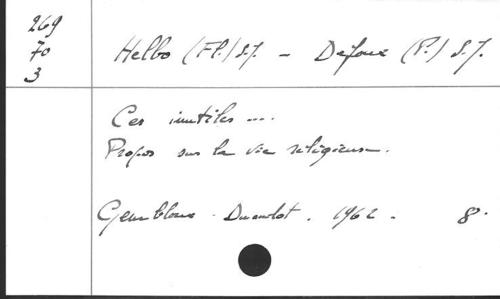 269
70
3
Helbo (Fl.) S.J. - Defoux (P.) S.J.
Ces inutiles ....
Propos sur la vie religieuse.
Gembloux. Duculot. 1962. 8°